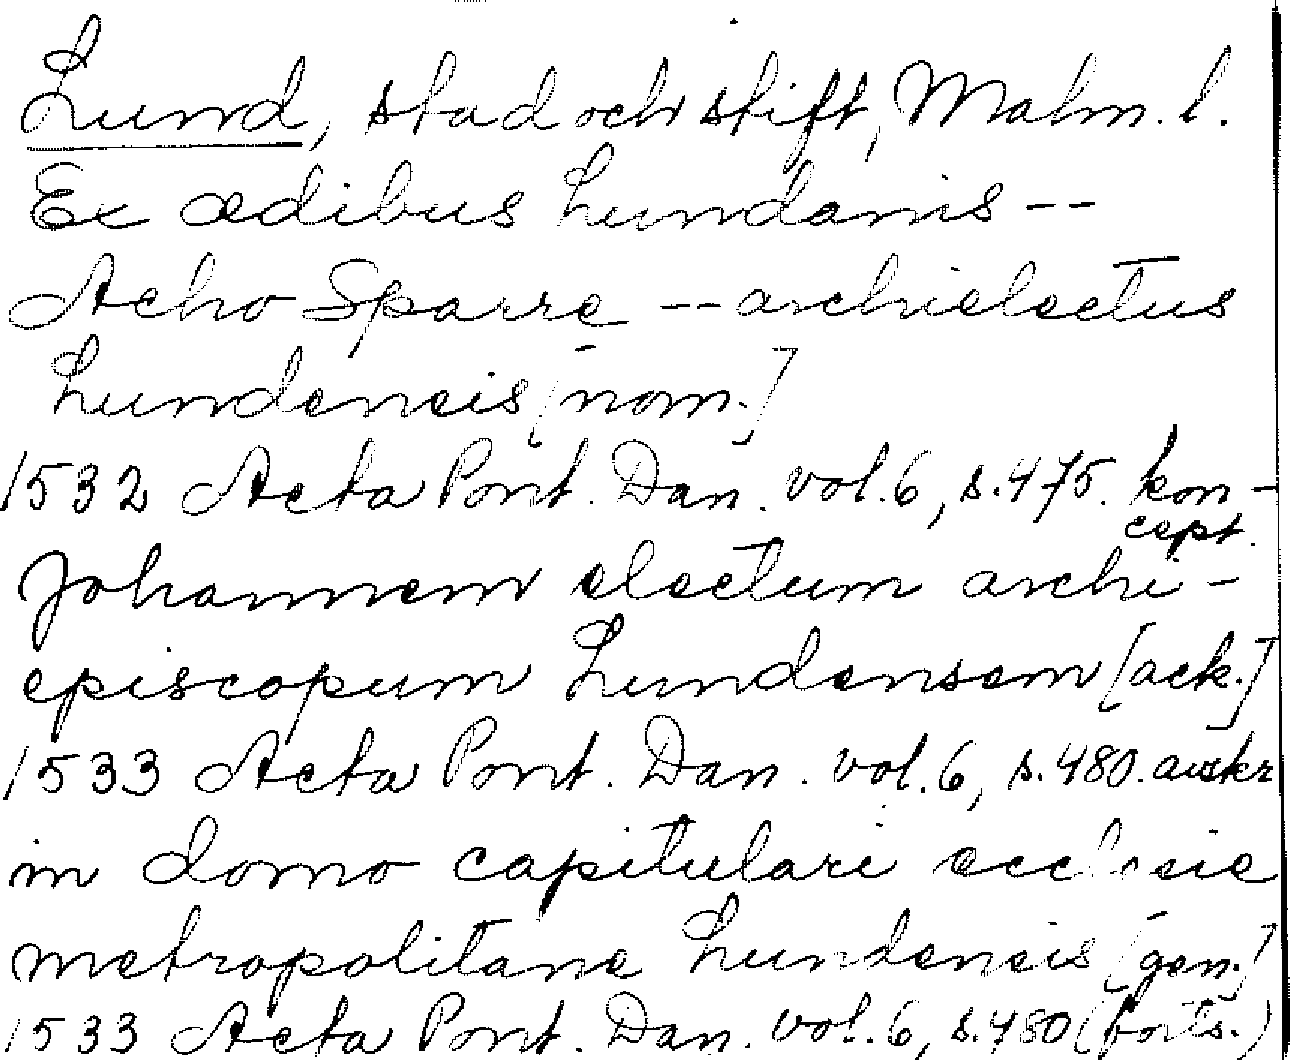 Lund, stad och stift, Malm. l.
Ex ædibus Lundanis --
Acho Sparre -- archielectus
Lundencis [nom.]
1532 Acta Pont. Dan. vol. 6, s. 475. kon-
cept.
Johannem electum archi-
episcopum Lundensem [ack.]
1533 Acta Pont. Dan. vol. 6, s. 480. avskr
in domo capitulari ecclesie
metropolitane Lundencis [gen.]
1533 Acta Pont. Dan. vol. 6, s. 480 (forts.)